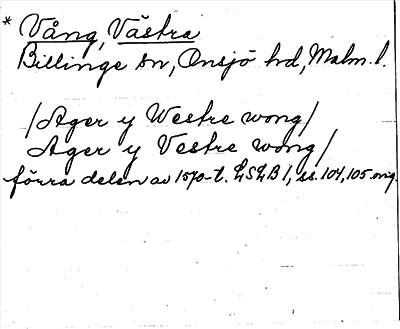 * Vång, Västra
Billinge sn, Onsjö hd, Malm. l.
/Ager y Westre wong/
Ager y Vestre wong/
förra delen av 1570-t. LSLB 1, ss. 104, 105. orig.